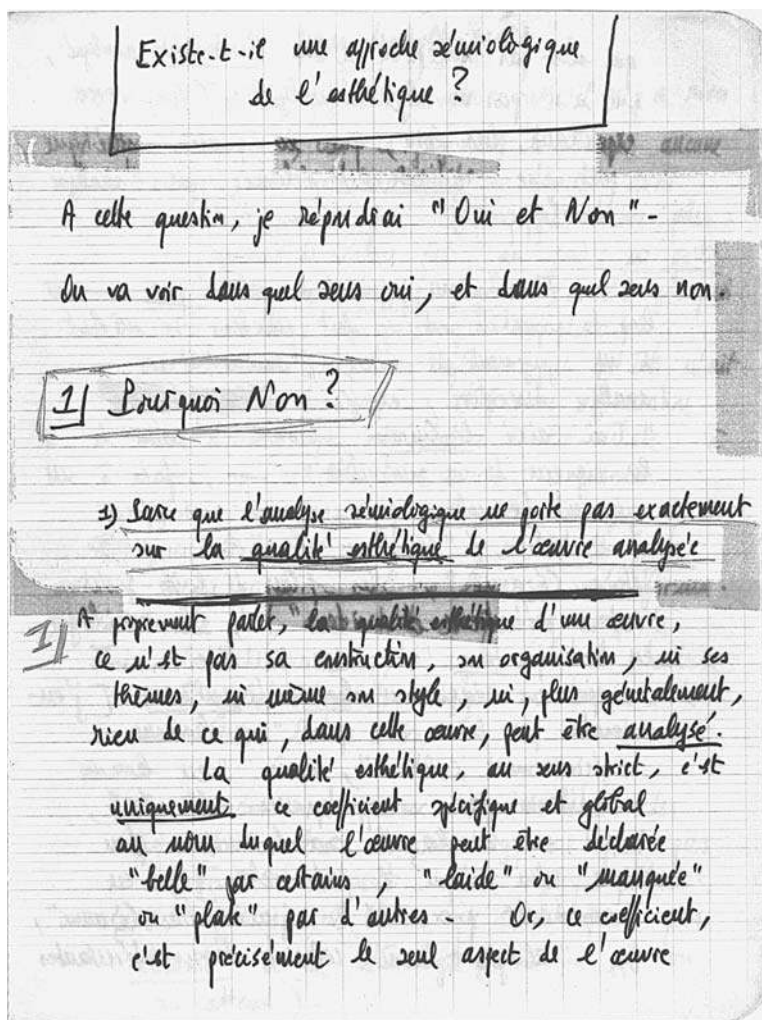 Existe-t-il une approche sémiologique
de l'esthétique ?
A cette question, je répondrai "Oui et Non" -
On va voir dans quel sens oui, et dans quel sens non.
1/ Pourquoi Non ?
1) Parce que l'analyse sémiologique ne porte pas exactement
sur la qualité esthétique de l'œuvre analysée
1/ A proprement parler, "la qualité esthétique d'une œuvre,
ce n'est pas sa construction, son organisation, ni ses
thèmes, ni même son style, ni, plus généralement,
rien de ce qui, dans cette œuvre, peut être analysé.
La qualité esthétique, au sens strict, c'est
uniquement ce coefficient spécifique et global
au nom duquel l'œuvre peut être déclarée
"belle" par certains, "laide" ou "manquée"
ou "plate" par d'autres - Or, ce coefficient,
c'est précisément le seul aspect de l'œuvre